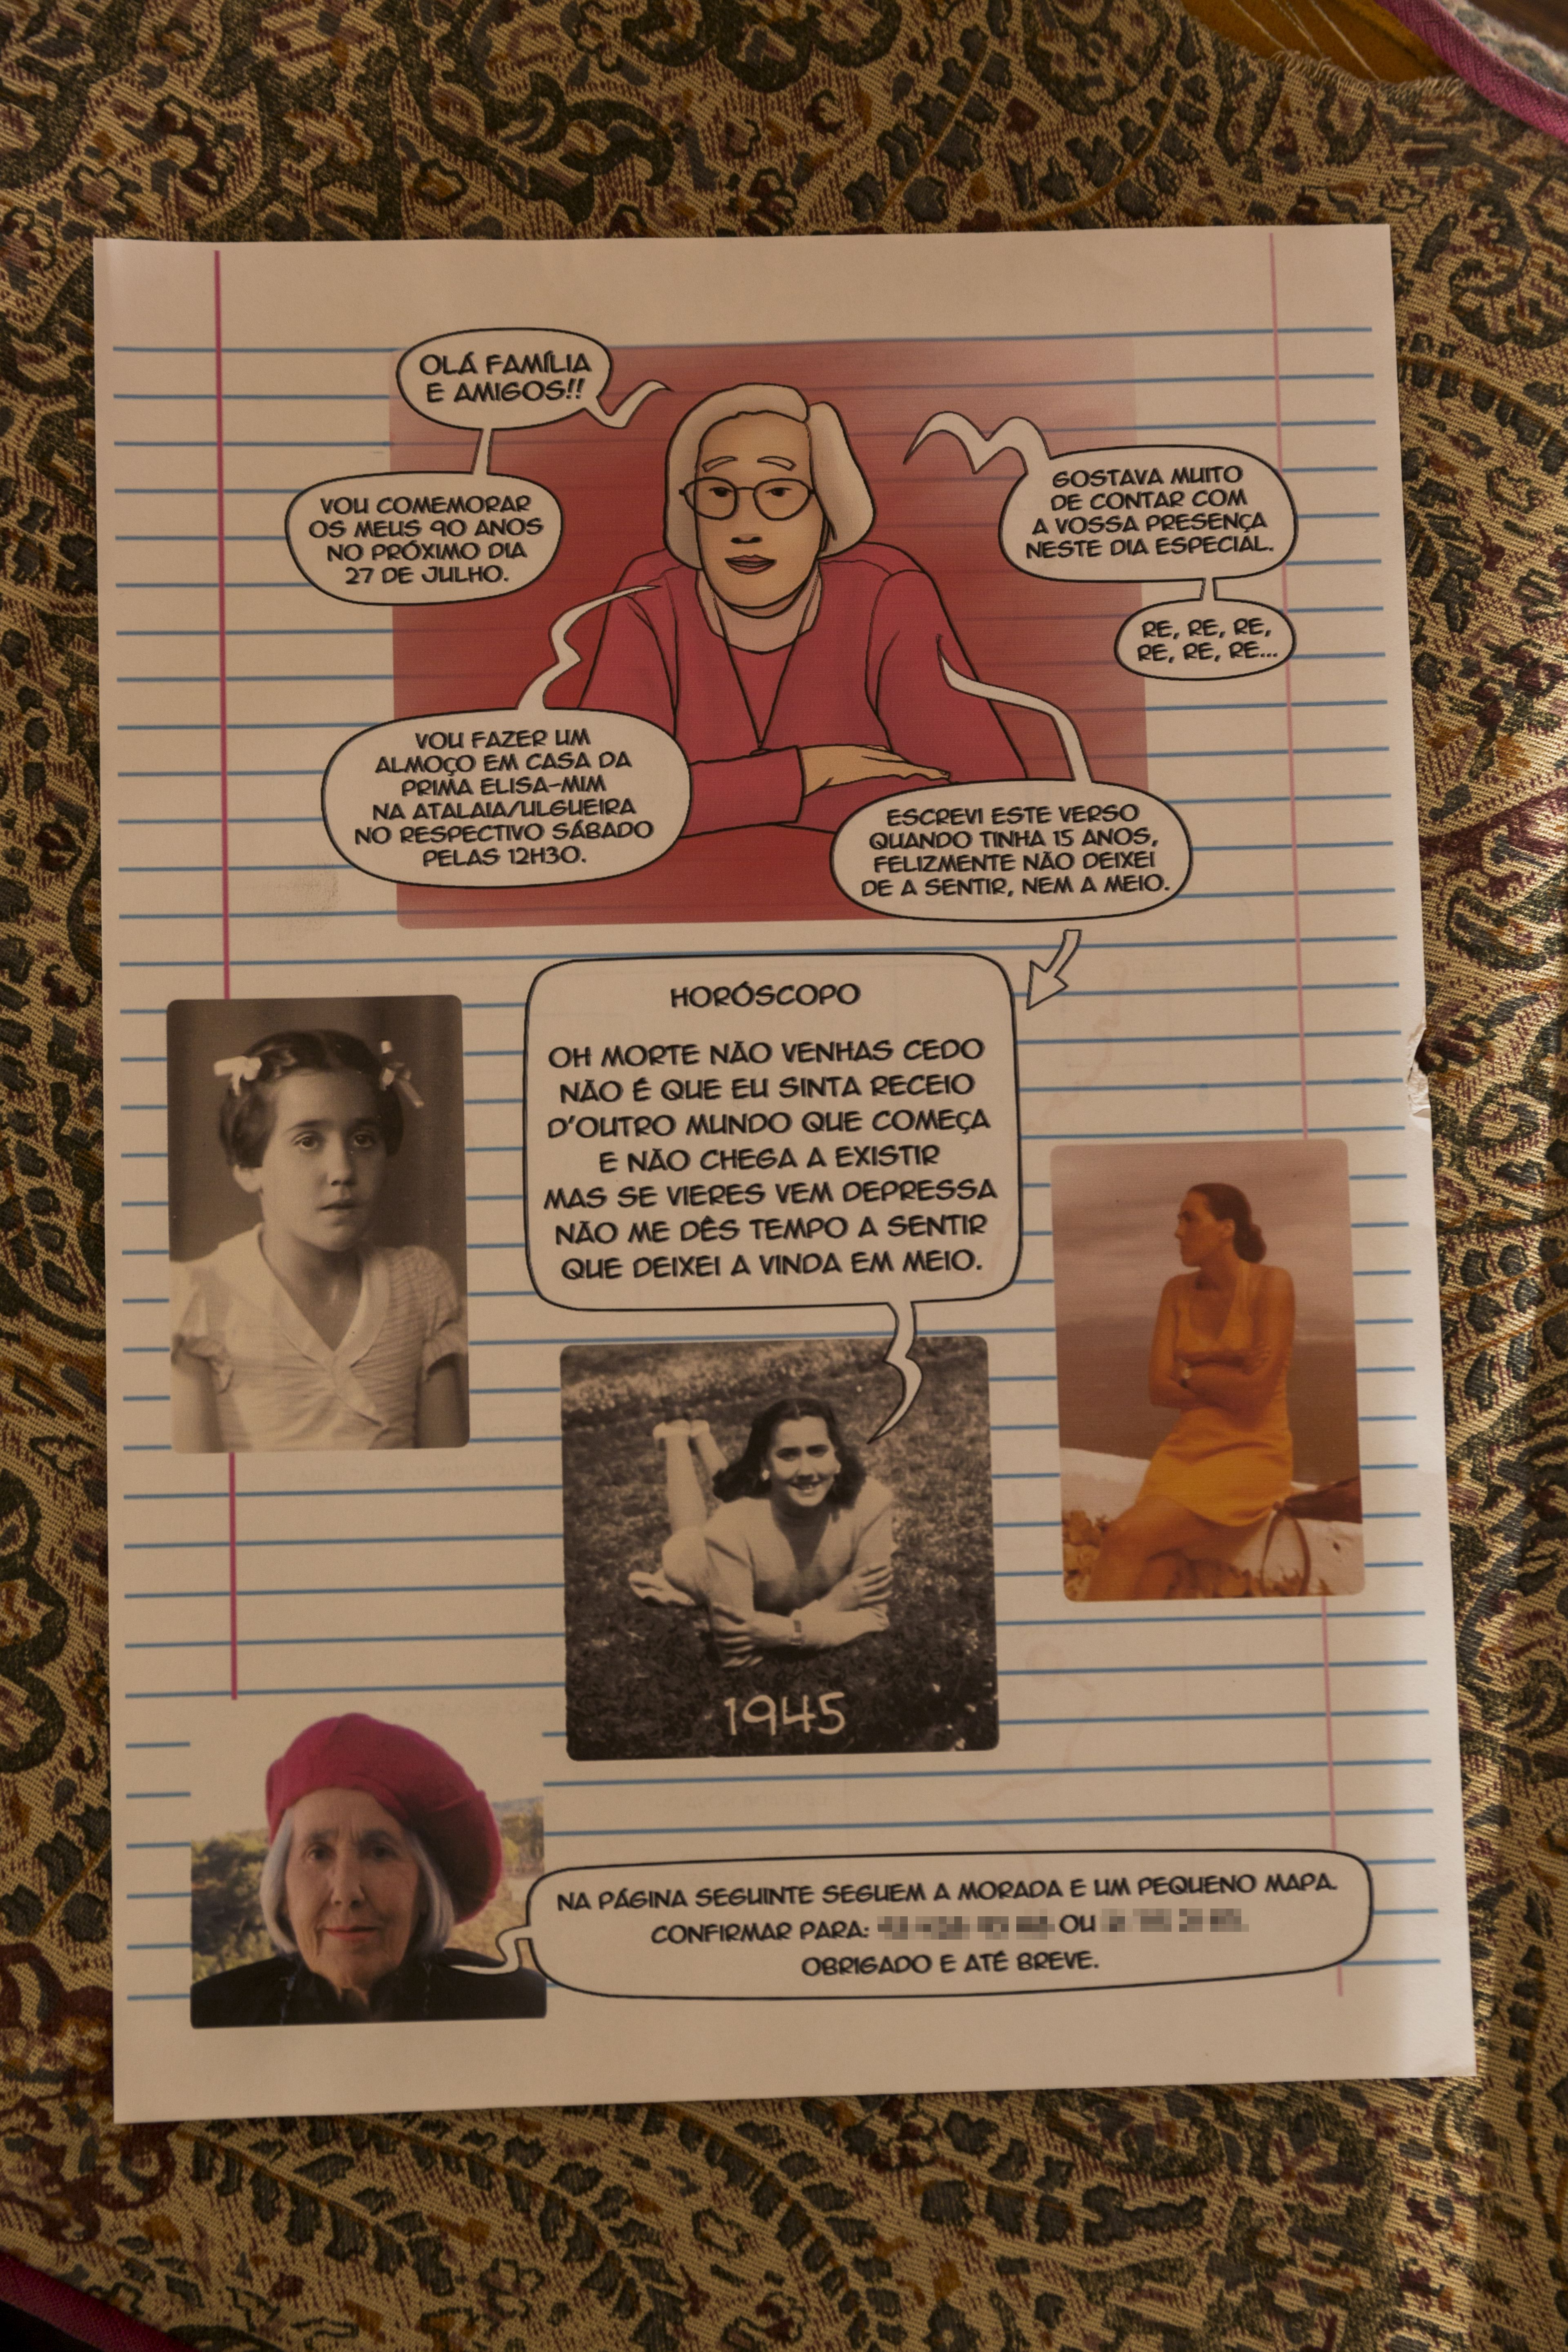 OLÁ FAMÍLIA
E AMIGOS!!
VOU COMEMORAR
OS MEUS 90 ANOS
NO PRÓXIMO DIA
27 DE JULHO.
GOSTAVA MUITO
DE CONTAR COM
A VOSSA PRESENÇA
NESTE DIA ESPECIAL.
RE, RE, RE,
RE, RE, RE...
VOU FAZER UM
ALMOÇO EM CASA DA
PRIMA ELISA-MIM
NA ATALAIA/ULGUEIRA
NO RESPECTIVO SÁBADO
PELAS 12H30.
ESCREVI ESTE VERSO
QUANDO TINHA 15 ANOS,
FELIZMENTE NÃO DEIXEI
DE A SENTIR, NEM A MEIO.
HORÓSCOPO
OH MORTE NÃO VENHAS CEDO
NÃO É QUE EU SINTA RECEIO
D'OUTRO MUNDO QUE COMEÇA
E NÃO CHEGA A EXISTIR
MAS SE VIERES VEM DEPRESSA
NÃO ME DÊS TEMPO A SENTIR
QUE DEIXEI A VINDA EM MEIO.
1945
NA PÁGINA SEGUINTE SEGUEM A MORADA E UM PEQUENO MAPA.
CONFIRMAR PARA: OU
OBRIGADO E ATÉ BREVE.